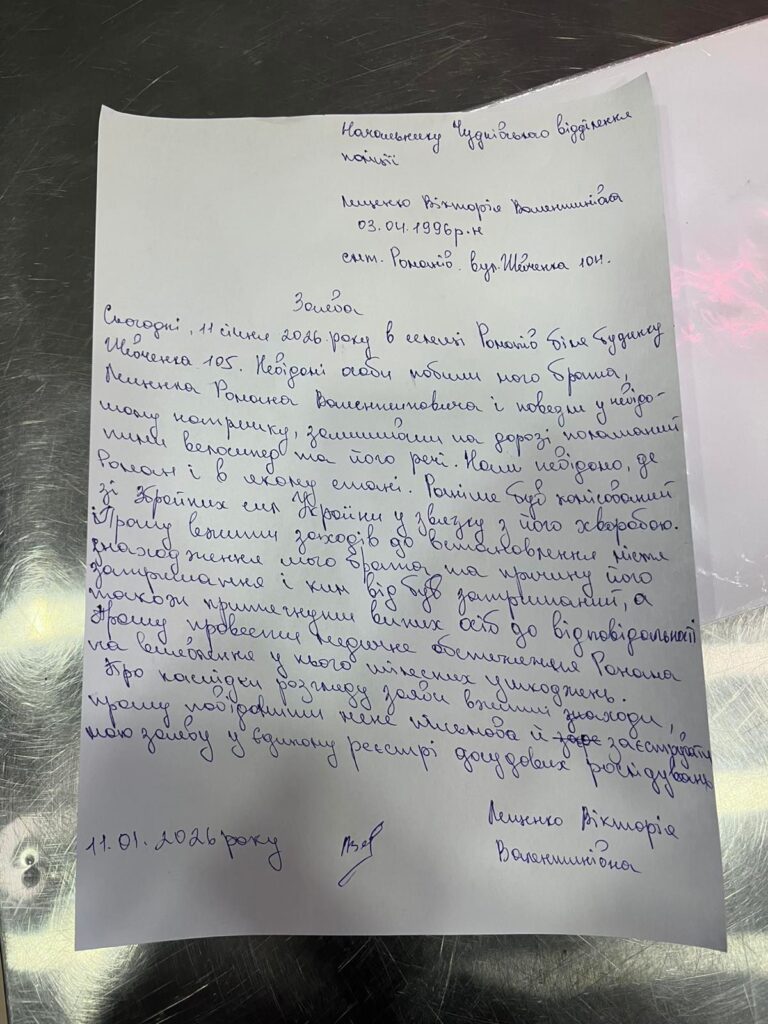 Начальнику Чуднівського відділення
поліції
Лященко Вікторія Валентинівна
03.04.1996р.н
смт. Романів. вул. Шевченка 104.
Заява
Сьогодні, 11 січня 2026 року в селищі Романів біля будинку
Шевченка 105. Невідомі особи побили мого брата,
Лященка Романа Валентиновича і повезли у невідо-
мому напрямку, залишивши на дорозі поламаний
ними велосипед та його речі. Нам невідомо, де
Роман і в якому стані. Раніше був комісований
зі Збройних сил України у звязку з його хворобою.
Прошу вжити заходів до встановлення місця
знаходження мого брата та причину його
затримання і ким він був затриманий, а
також притягнути винних осіб до відповідальності
Прошу провести медичне обстеження Романа
на виявлення у нього тілесних ушкоджень.
Про наслідки розгляду заяви вжиті заходи,
прошу повідомити мене письмово й заєструвати
мою заяву у Єдиному реєстрі досудових розслідувань
11.01.2026 року
Лященко Вікторія
Валентинівна